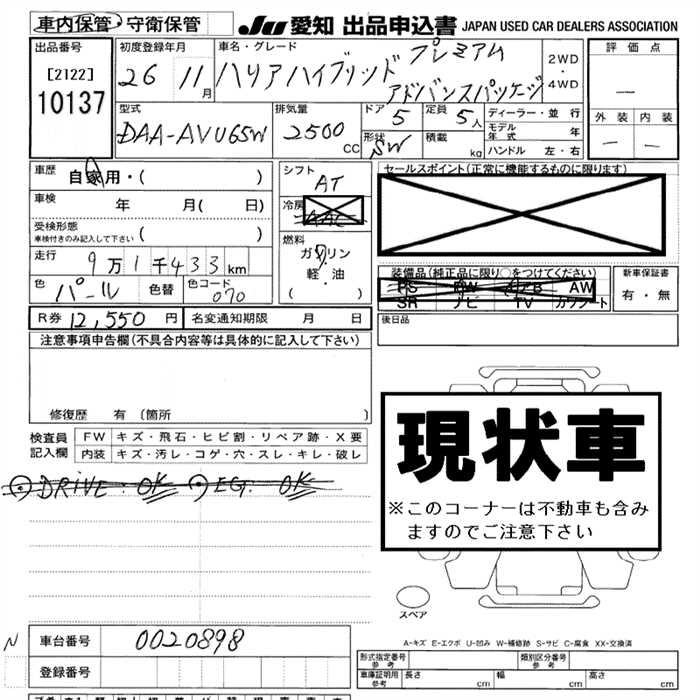 車内保管・守衛保管
JU 愛知 出品申込書 JAPAN USED CAR DEALERS ASSOCIATION
出品番号
[2122]
10137
初度登録年月
26 11月
車名・グレード
プレミアム
ハリアハイブリッド アドバンスパッケージ
2WD
・
4WD
評価点
—
外装 内装
— —
型式
DAA-AVU65W
排気量
2500 CC
ドア
5
定員
5人
形状
SW
積載
kg
ディーラー・並行
モデル年式 年
ハンドル 左・右
車歴
自家用・( )
車検 年 月( 日)
受検形態
車検付きのみ記入して下さい ( )
走行 9万1千433km
色 パール 色替 色コード 070
シフト
AT
冷房
AAC
燃料
ガソリン
軽・油
( )
セールスポイント(正常に機能するものに限ります)
装備品(純正品に限り○をつけてください)
PS PW AB AW
SR ナビ TV カワシート
新車保証書
有・無
R券 12,550円 名変通知期限 月 日
後日品
注意事項申告欄(不具合内容等は具体的に記入して下さい)
修復歴 有 (箇所 )
検査員記入欄
FW キズ・飛石・ヒビ割・リペア跡・X要
内装 キズ・汚レ・コゲ・穴・スレ・キレ・破レ
DRIVE・OK EG・OK
現状車
※このコーナーは不動車も含み
ますのでご注意下さい
スペア
A-キズ E-エクボ U-凹み W-補修跡 S-サビ C-腐食 XX-交換済
N
車台番号 0020898
登録番号
形式指定番号 参考
類別区分番号 参考
車庫証明用 参考 長さ cm 幅 cm 高さ cm